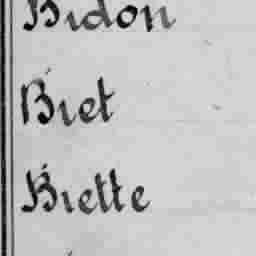 Bidon
Biet
Biette